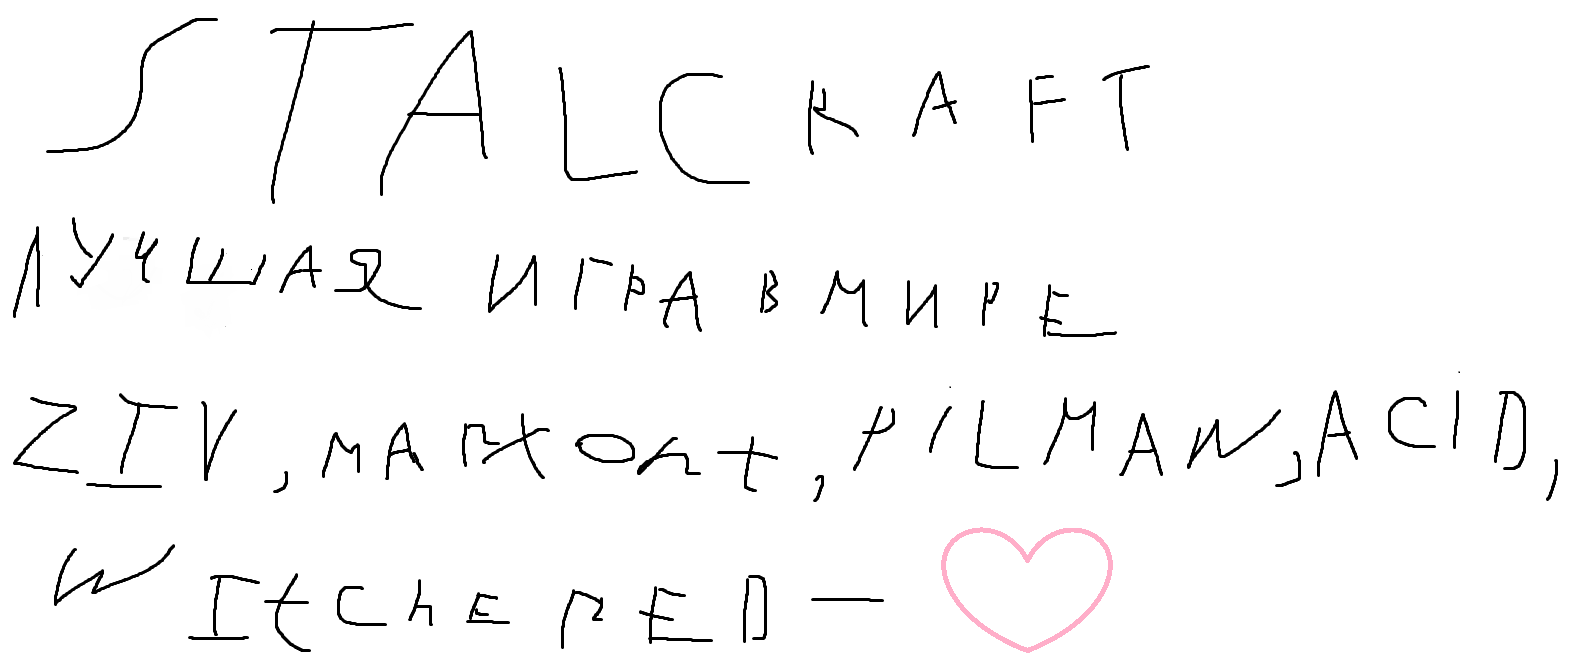 STALCRAFT
ЛУЧШАЯ ИГРА В МИРЕ
ZIV, MARKONT, PILMAN, ACID,
WItChERED —